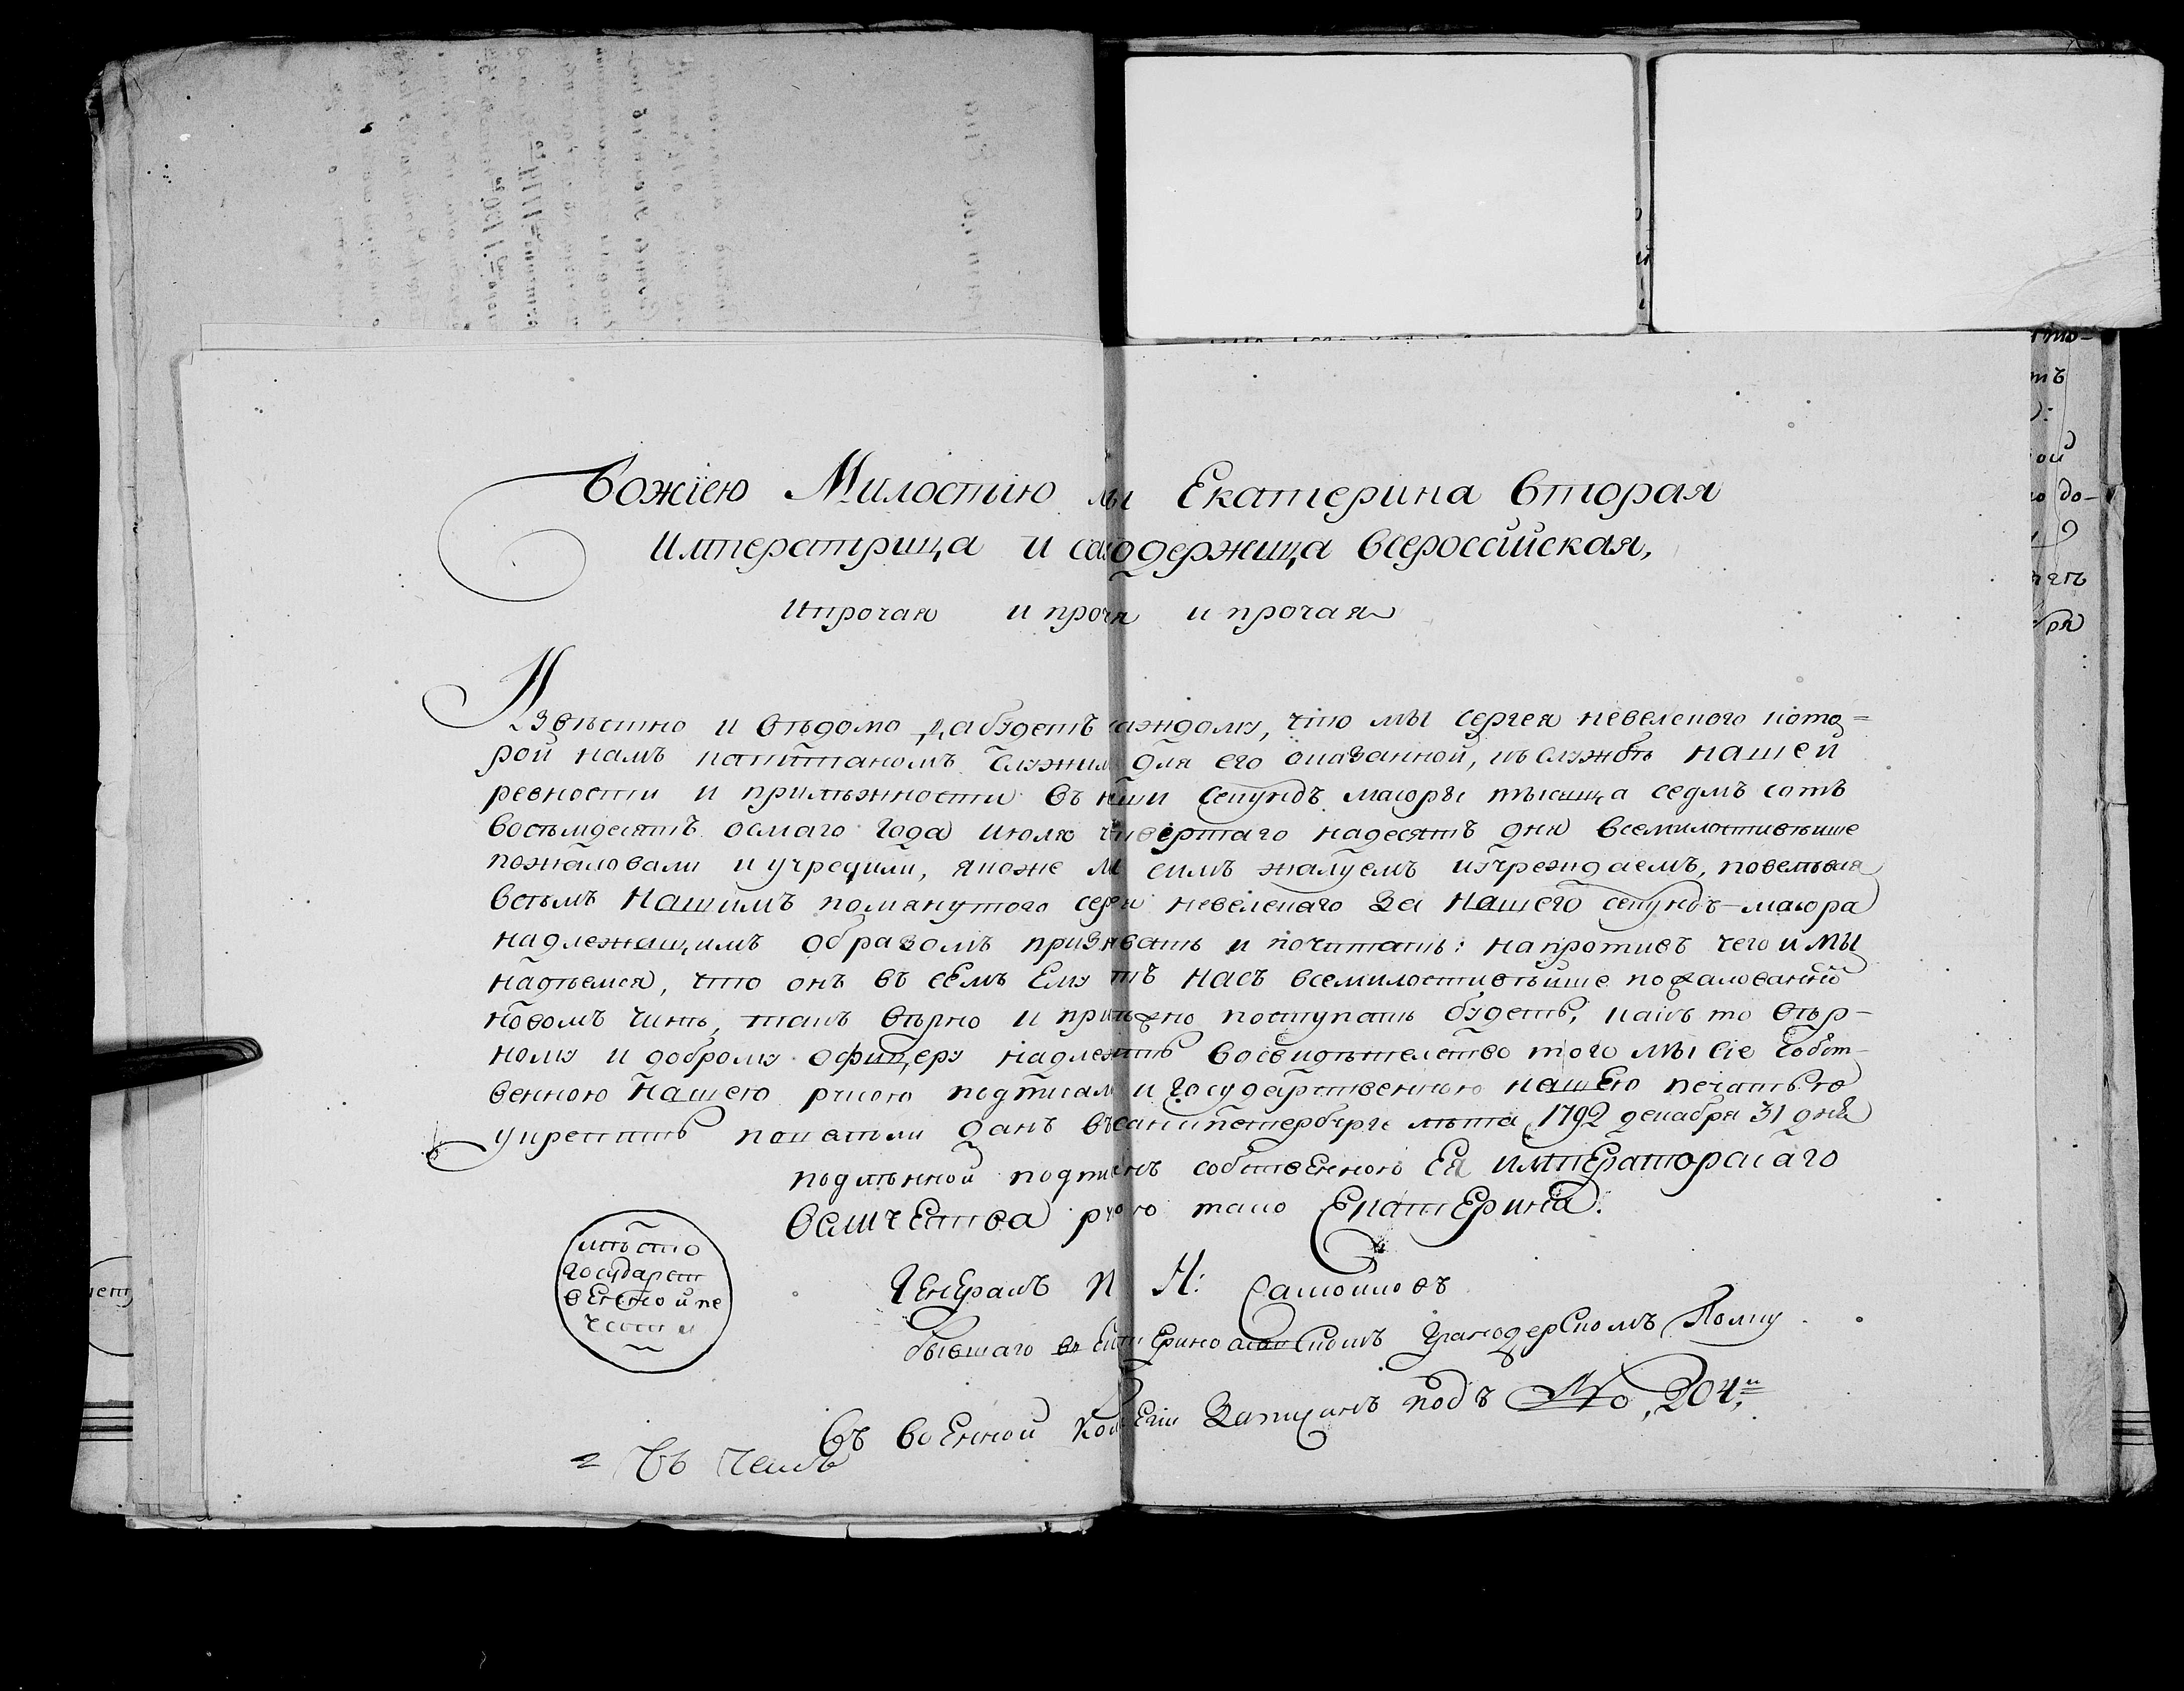 Божіею Милостію мы Екатерина вторая
императрица и самодержица всероссійская,
ипрочая и прочая и прочая
Извѣстно и вѣдомо да будетъ каждому, что мы сергея невеленого кото=
рой намъ капитаномъ служилъ для его оказанной, къ службѣ нашей
ревности и прилѣжности въ нши секундъ маіоры тысяща седмъ сотъ
восемдесятъ осмаго года июля четвертаго надесятъ дня всемилостивѣише
пожаловали и учредили, якоже мы симъ жалуемъ иучреждаемъ, повелѣвая
всѣмъ нашимъ помянутого сергея невеленаго за нашего секундъ-маіора
надлежащимъ образомъ признавать и почитать: напротивъ чего и мы
надѣемся, что онъ въ семъ ему отъ насъ всемилостивѣише пожалованнй
новомъ чинѣ, такъ вѣрно и прилѣжно поступать будетъ, какъ то вѣр-
ному и доброму офицеру надлежитъ восвидѣтелство того мы сіе собст-
венною нашею рукою подписали и государственною нашею печатью
укрепить повелѣли данъ въ санктпетербурге лѣта 1792 декабря 31 дня
подлинной подписанъ собственною ея императорскаго
величества рукою тако Екатерина.
мѣсто
государст
венной пе
чати
Генералъ П Н: Самойловъ
бывшаго в екатеринославскомъ гранодерскомъ полку
въ военной колегіи записанъ подъ No 204,